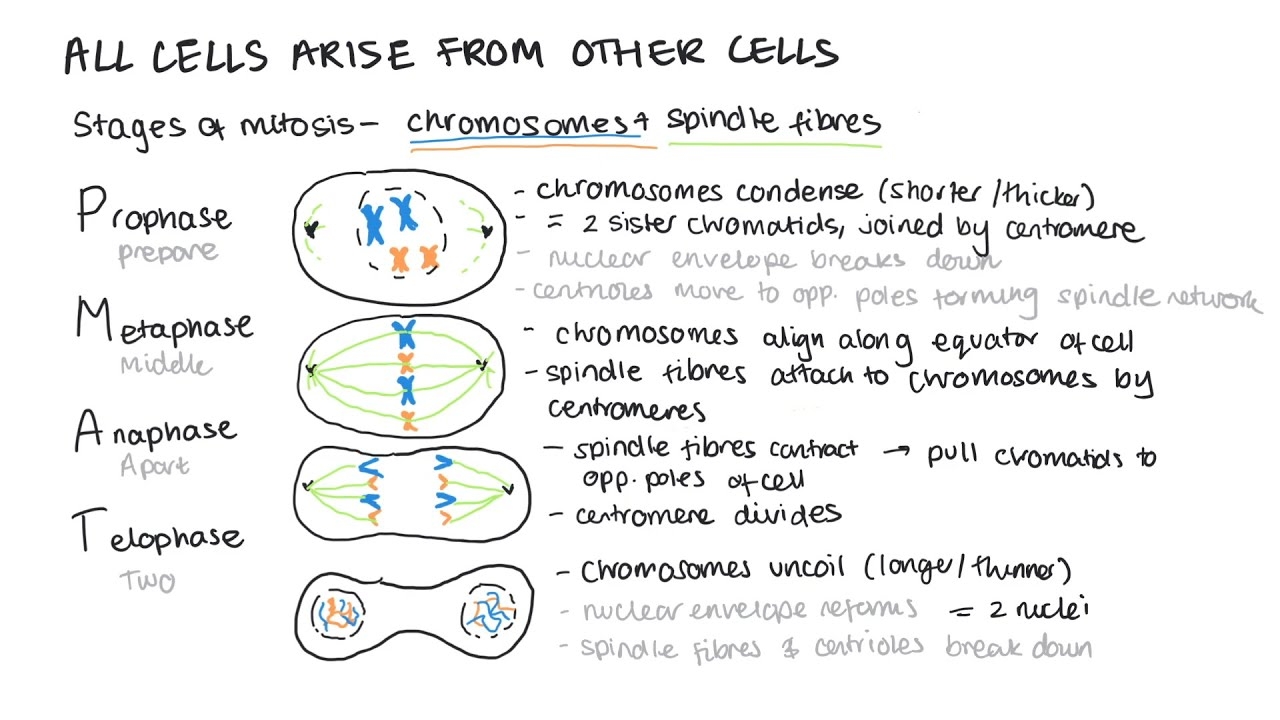 ALL CELLS ARISE FROM OTHER CELLS
Stages of mitosis - chromosomes + spindle fibres
Prophase
prepare
- chromosomes condense (shorter/thicker)
- = 2 sister chromatids, joined by centromere
- nuclear envelope breaks down
- centrioles move to opp. poles forming spindle network
Metaphase
Middle
- chromosomes align along equator of cell
- spindle fibres attach to chromosomes by
centromeres
Anaphase
Apart
- spindle fibres contract → pull chromatids to
opp. poles of cell
- centromere divides
Telophase
Two
- chromosomes uncoil (longer/thinner)
- nuclear envelope reforms = 2 nuclei
- spindle fibres & centrioles break down